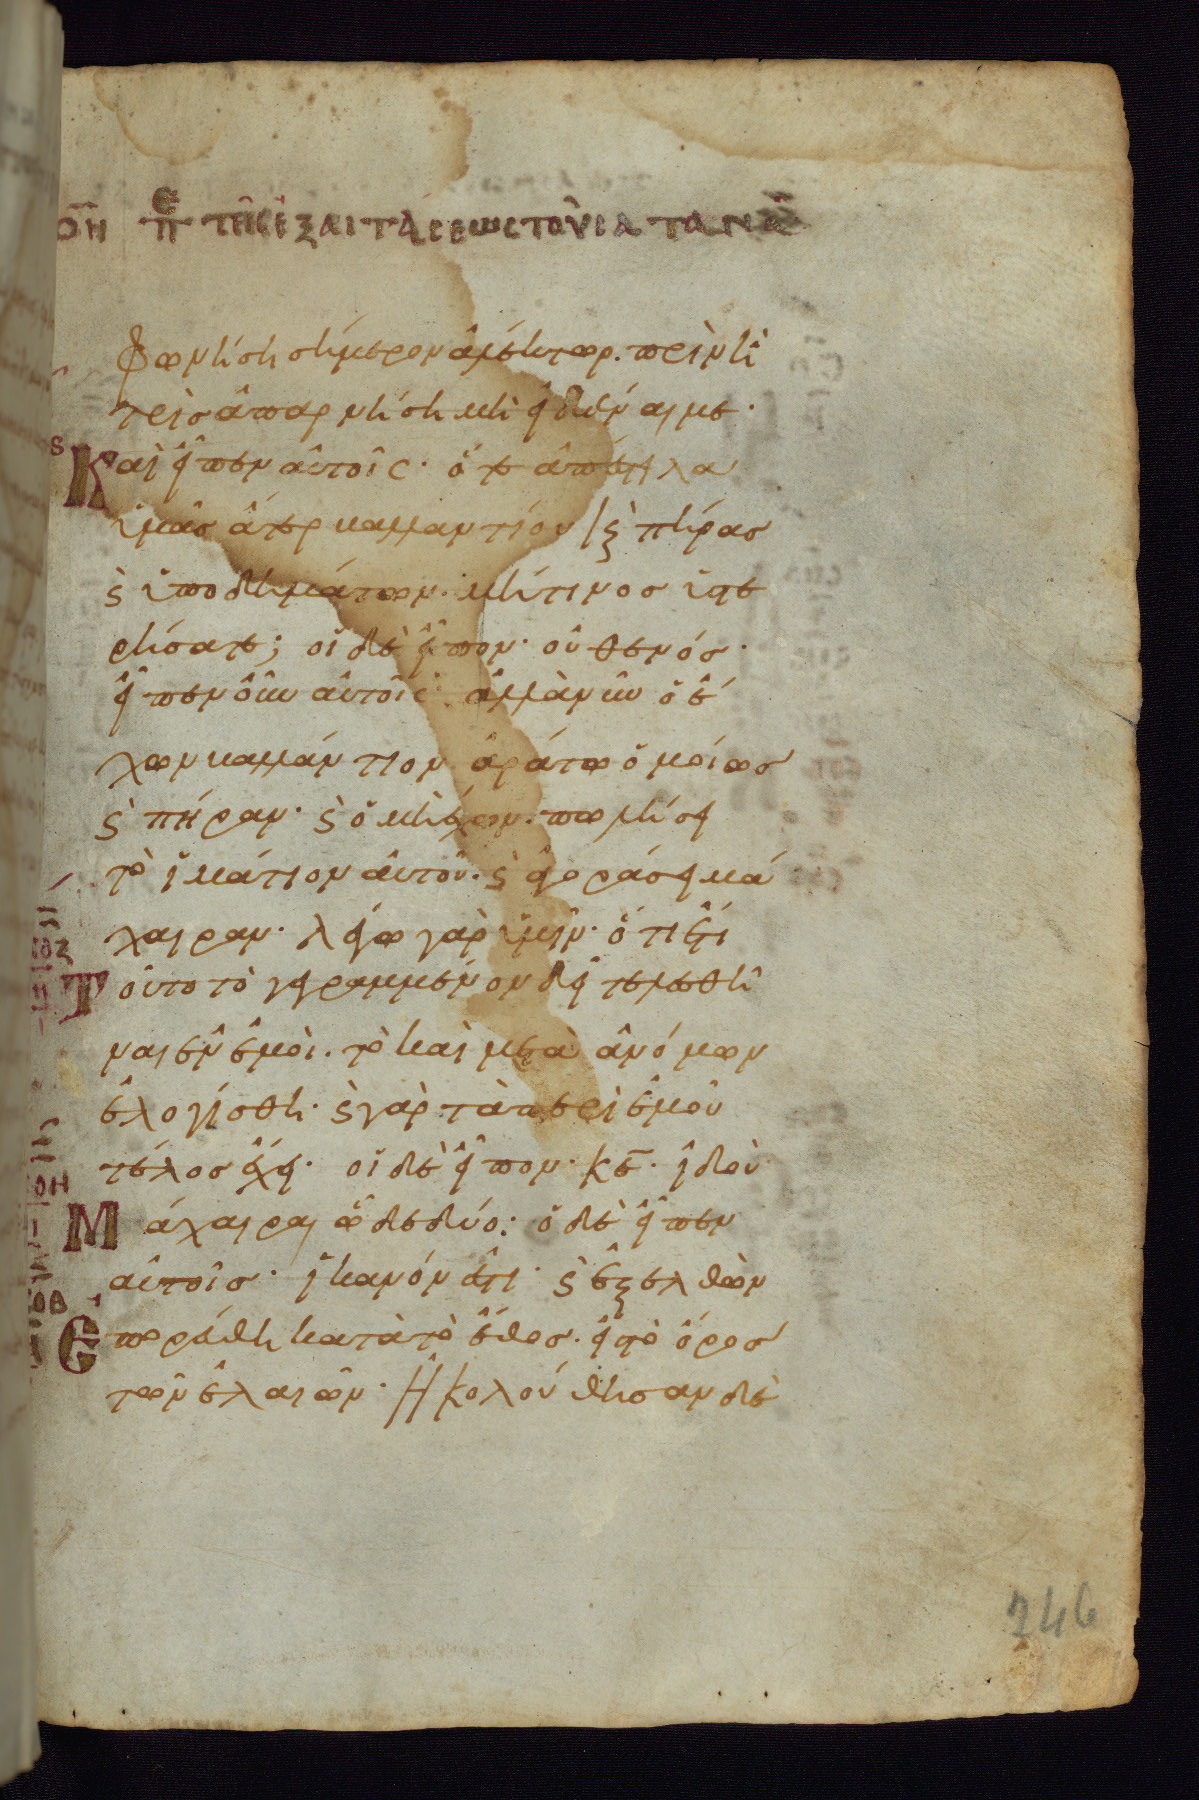 οη πε της εξαιτησεως του σατανα
φωνήση σήμερον ἀλέκτωρ. πρὶν ἢ
τρὶς ἀπαρνήση μὴ εἰδέναι με·
Καὶ εἶπεν αὐτοῖς· ὅτε ἀπέστειλα
ὑμᾶς ἄτερ βαλλαντίου ϛ πήρας
ϛ ὑποδημάτων. μή τινος ὑστε
ρήσατε; οἱ δὲ εἶπον· οὐθενός·
εἶπεν οὖν αὐτοῖς· ἀλλὰ νῦν ὁ ἔ
χων βαλλάντιον ἀράτω ὁμοίως
ϛ πήραν· ϛ ὁ μὴ ἔχων. πωλήσει
τὸ ἱμάτιον αὐτοῦ. ϛ ἀγοράσει μά
χαιραν· λέγω γὰρ ὑμῖν· ὅτι ἔτι
Τοῦτο τὸ γεγραμμένον δεῖ τελεσθῆ
ναι ἐν ἐμοὶ. τὸ καὶ μετὰ ἀνόμων
ἐλογίσθη· ϛ γὰρ τὰ περὶ ἐμοῦ
τέλος ἔχει· οἱ δὲ εἶπον· κε· ἰδοὺ
Μάχαιραι ὧδε δύο: ὁ δὲ εἶπεν
αὐτοῖς· ἱκανόν ἐστι· ϛ ἐξελθὼν
Ἐπορεύθη κατὰ τὸ ἔθος. εἰς τὸ ὄρος
τῶν ἐλαιῶν· Ἠκολούθησαν δὲ
246